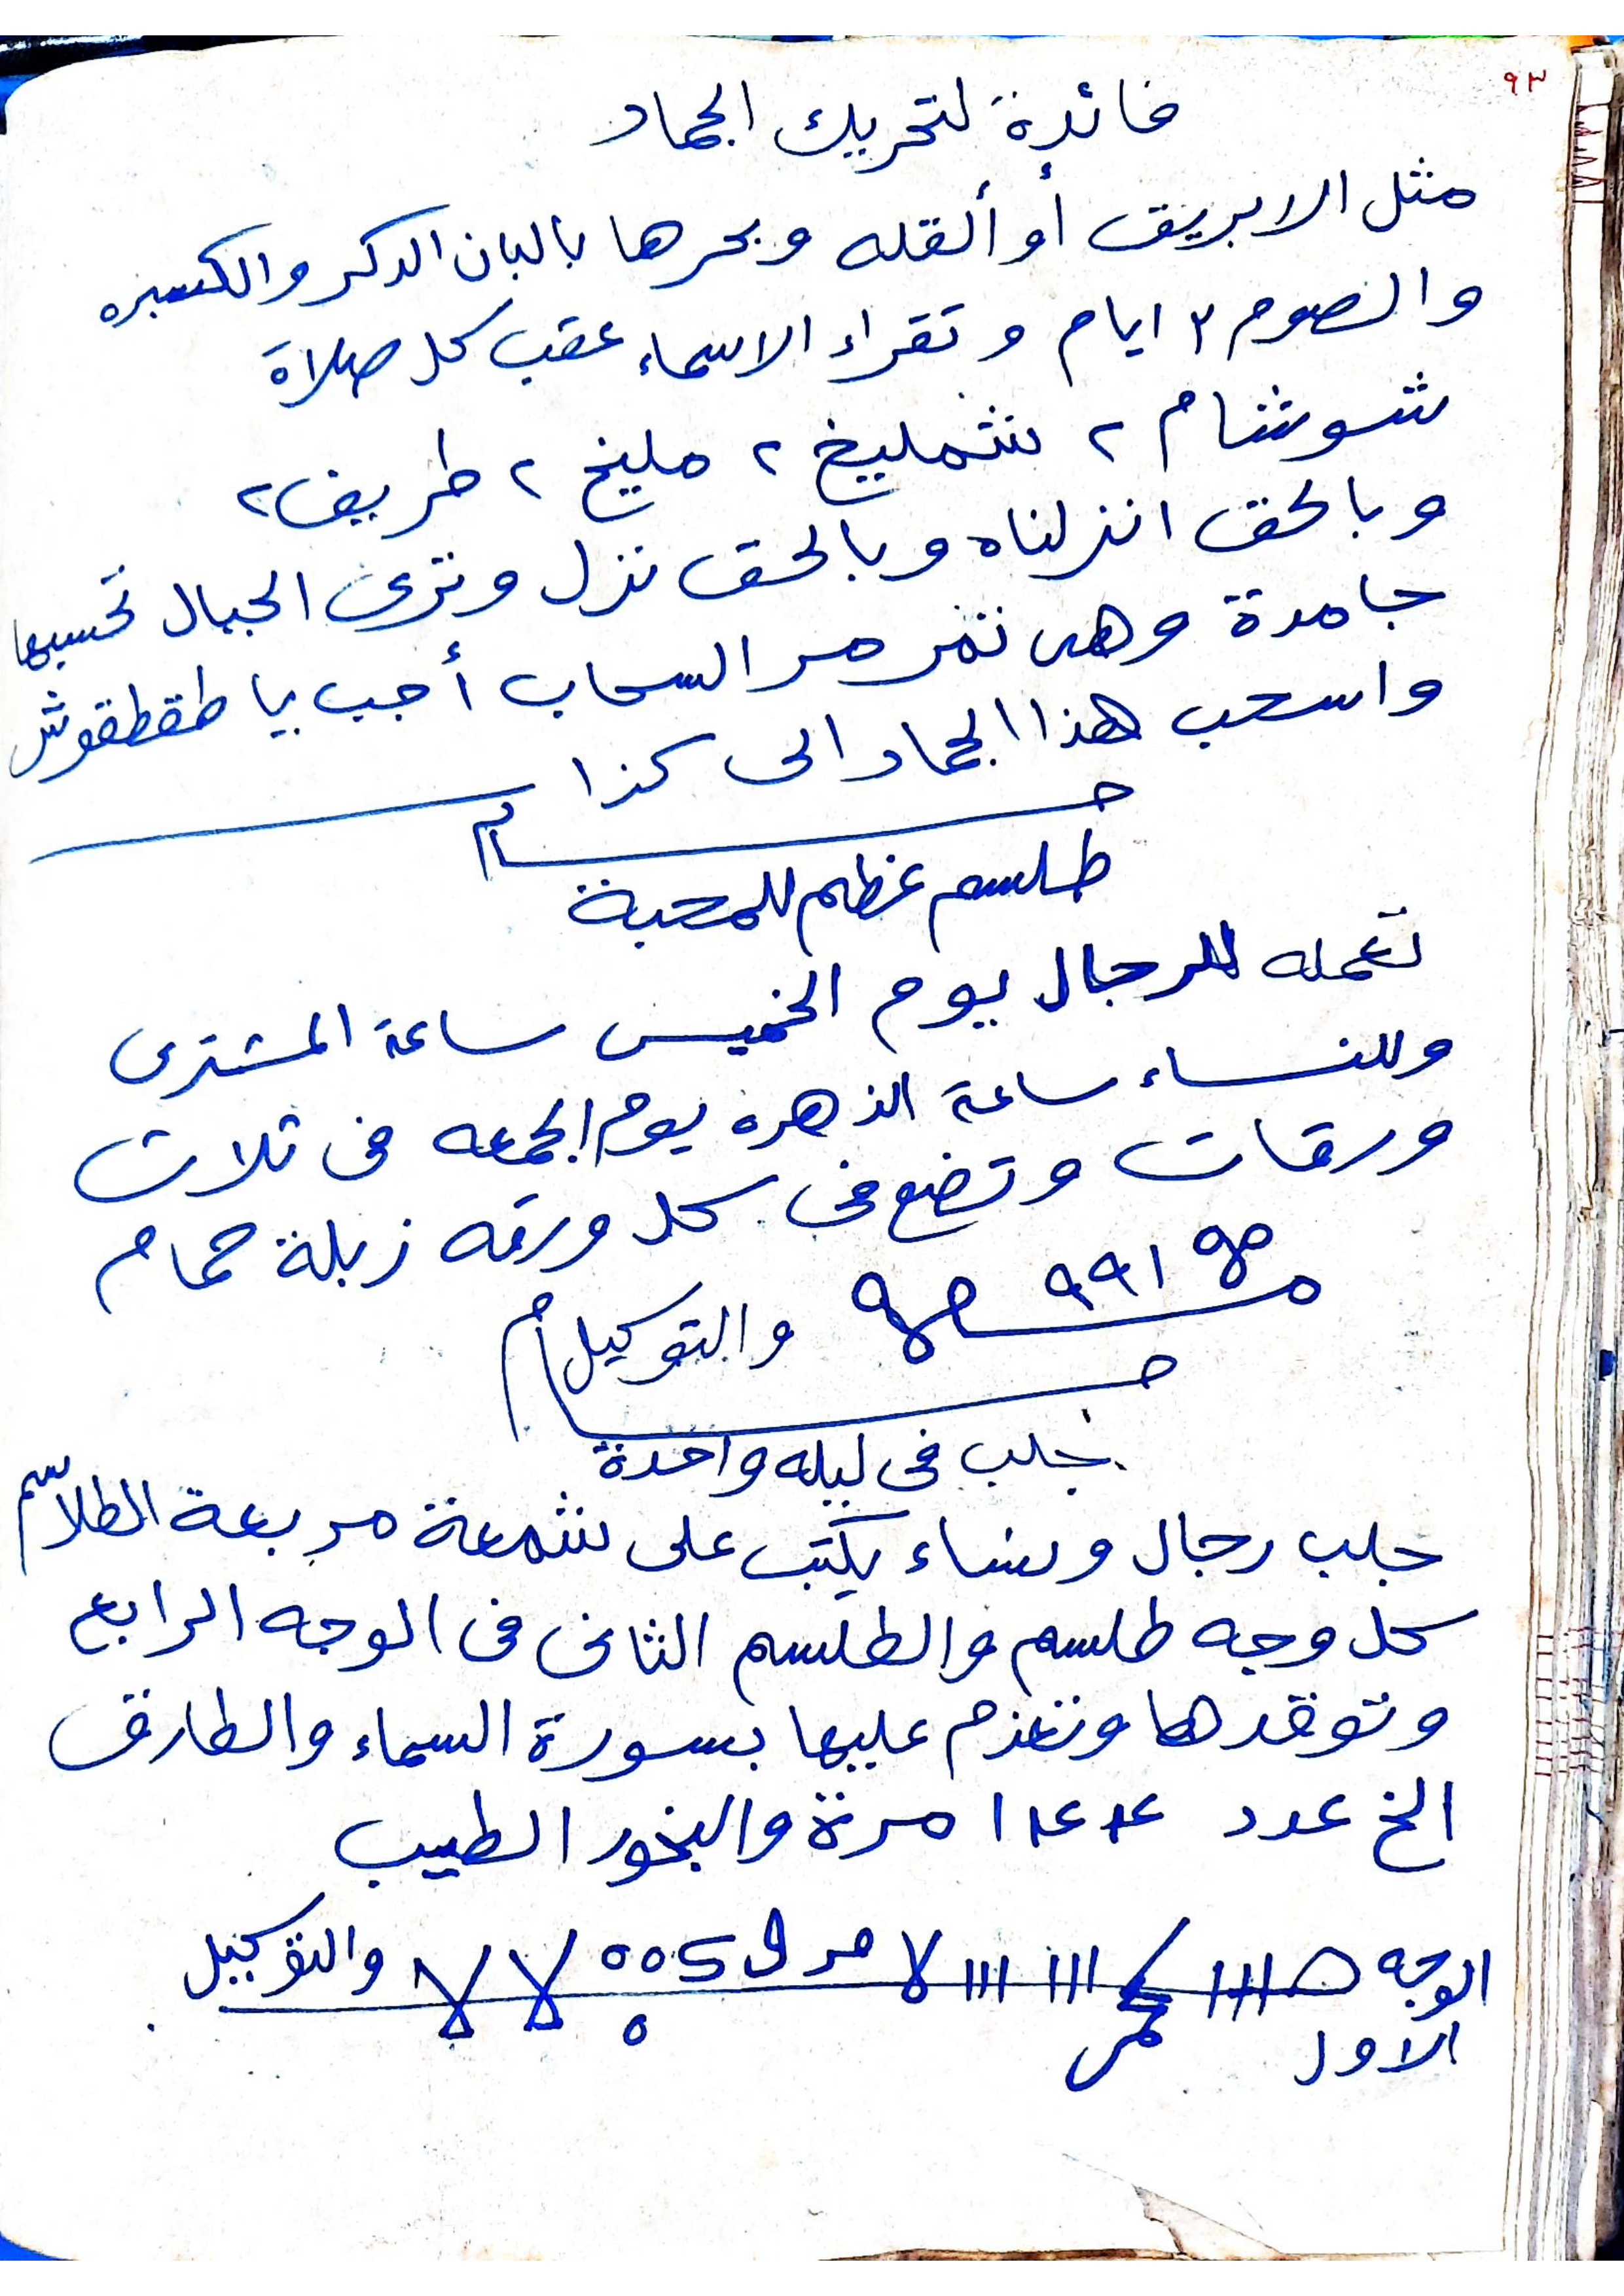 ٩٣
فائدة لتحريك الجماد
مثل الابريق أو ألقله وبحرها بالبان الدكر والكسبره
والصوم ٣ ايام وتقراء الاسماء عقب كل صلاة
شوشام ٢ شمليخ ٢ مليخ ٢ طريف ٢
وبالحق انزلناه وبالحق نزل وترى الجبال تحسبها
جامدة وهى تمر مر السحاب أجب يا طقطقوش
واسحب هذا الجماد الى كذا
طلسم عظيم للمحبة
تعمله للرجال يوم الخميس ساعة المشترى
وللنساء ساعة الزهره يوم الجمعه فى ثلاث
ورقات وتضع فى كل ورقه زبلة حمام
١٩٩ والتوكيل
جلب فى ليله واحدة
جلب رجال ونساء يكتب على شمعة مربعة الطلاسم
كل وجه طلسم والطلسم الثانى فى الوجه الرابع
وتوقدها وتعزم عليها بسورة السماء والطارق
الخ عدد مرة والبخور الطيب
الوجه والتوكيل
الاول